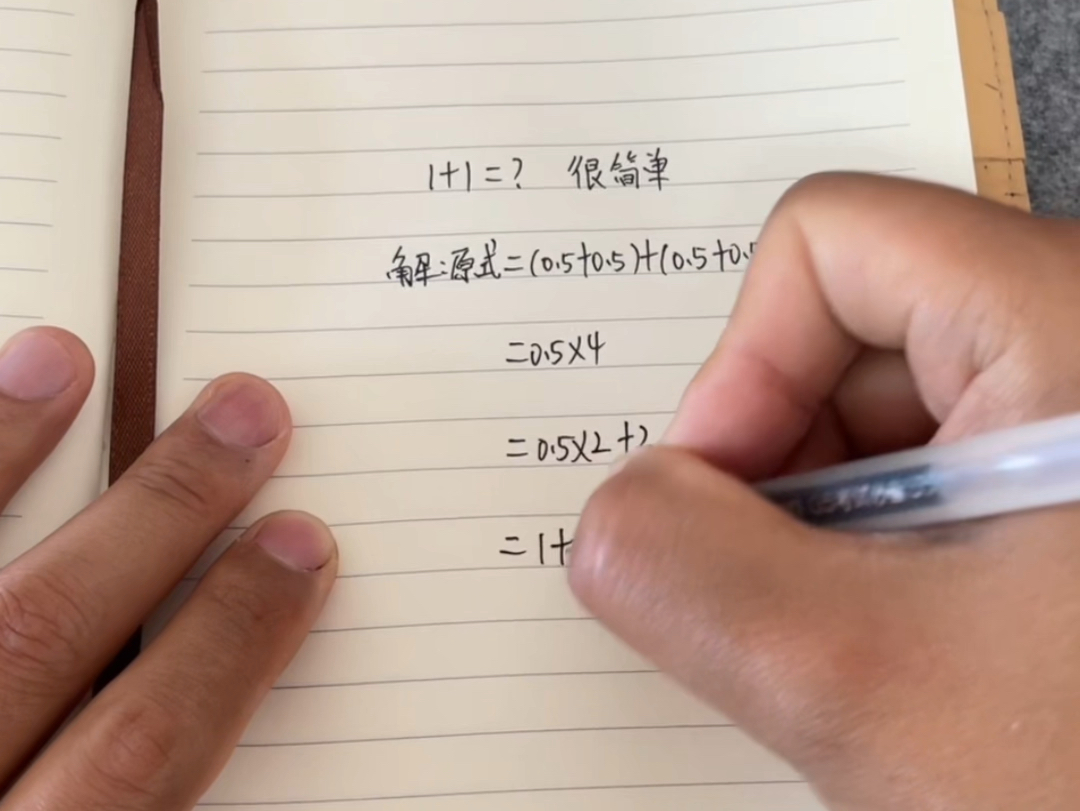 1+1=? 很简单
解:原式=(0.5+0.5)+(0.5+0.5
=0.5×4
=0.5×2+2
=1+